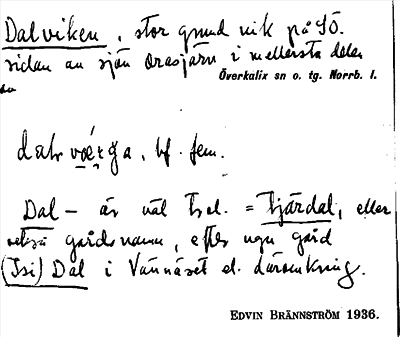 Dalviken, stor grund vik på SÖ.
sidan av sjön Orasjärv i mellersta delen
Överkalix sn o. tg. Norrb. l.
bf. fem.
Dal – är väl = Tjärdal, eller
också gårdsnamn, efter ngn gård
(Isi) Dal i Vännäset el. däromkring.
EDVIN BRÄNNSTRÖM 1936.